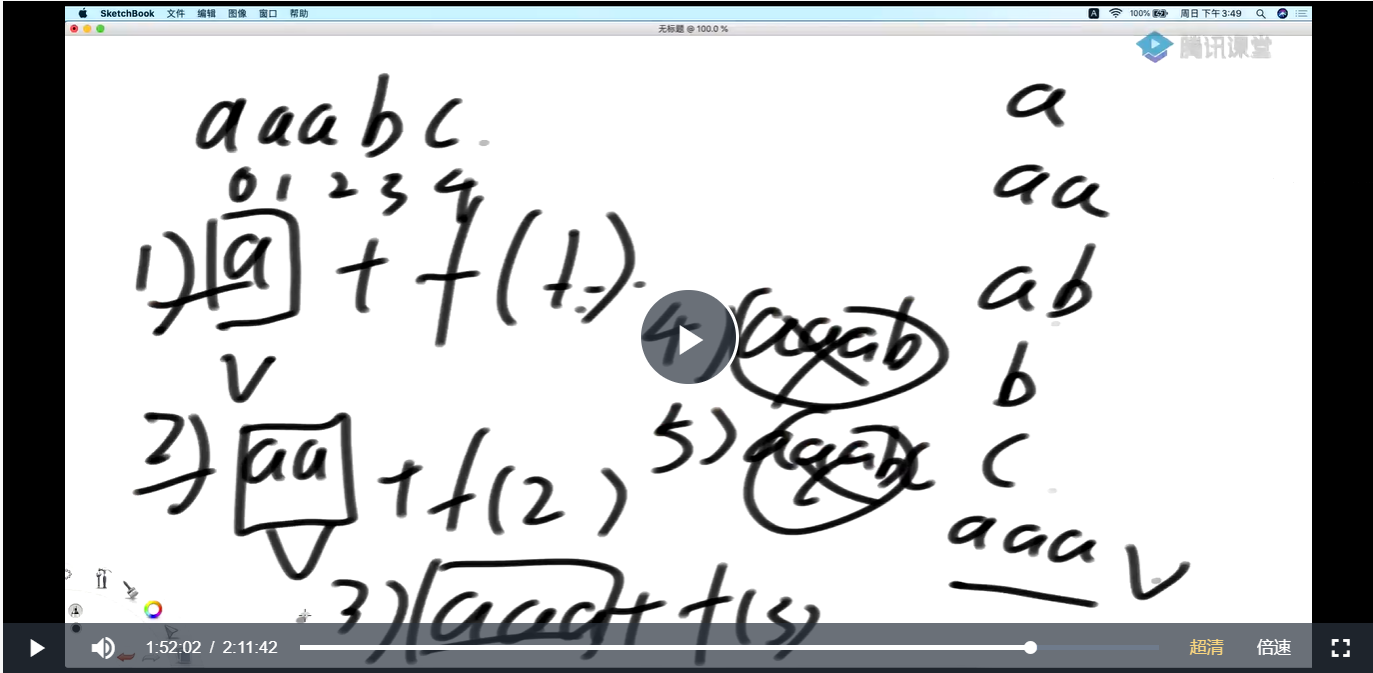 SketchBook 文件 编辑 图像 窗口 帮助
A 100% 周日 下午3:49
无标题 @ 100.0 %
腾讯课堂
aaabc
0 1 2 3 4
1) a + f(1)
2) aa + f(2)
3) aaa + f(3)
4) aaab
5) aaabc
a
aa
ab
b
c
aaa
1:52:02 / 2:11:42
超清 倍速